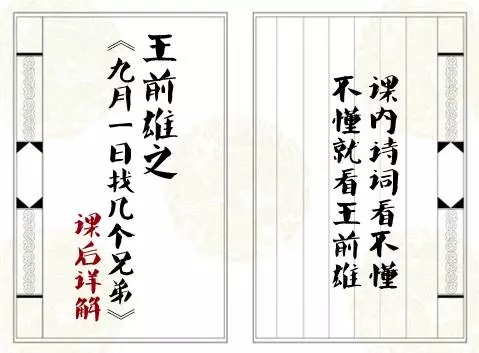 课内诗词看不懂
不懂就看王前雄
王前雄之
《九月一日找几个兄弟》
课后详解